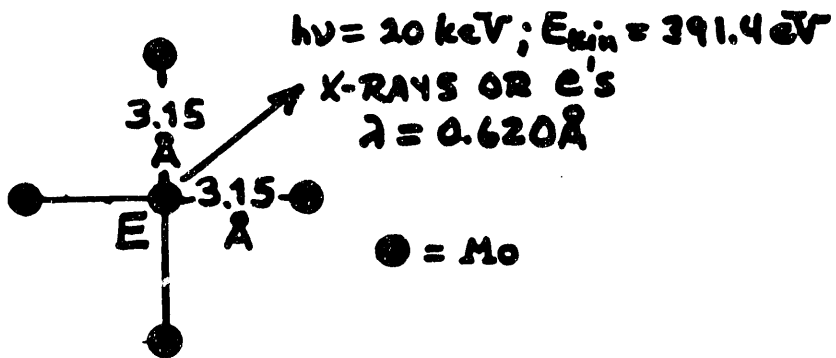 hν = 20 keV; Ekin = 391.4 eV
X-RAYS OR e's
λ = 0.620Å
3.15
Å
3.15
Å
E
= Mo